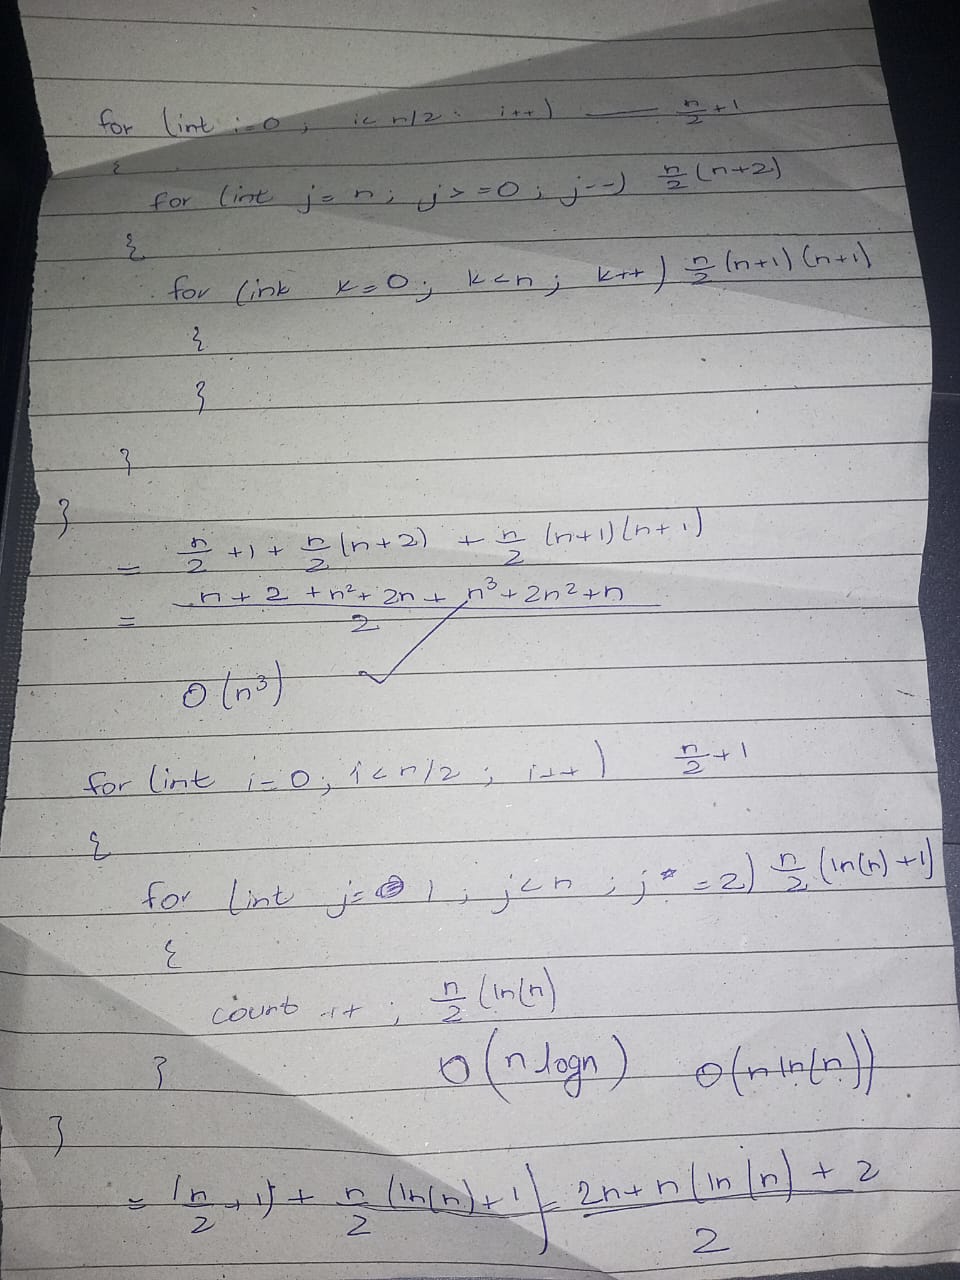 for (int i=0; i< n/2; i++) — n/2 +1
{
for (int j= n; j>=0; j--) n/2 (n+2)
{
for (ink k=0; k<n; k++) n/2 (n+1)(n+1)
{
}
}
}
= n/2 +1+ n/2 (n+2) + n/2 (n+1)(n+1)
= n+2 +n²+2n+ n³+2n²+n / 2
O(n³) ✓
for (int i=0; i<n/2; i++) n/2 +1
{
for (int j= 1; j<n; j*=2) n/2 (ln(n)+1)
{
count ++; n/2 (ln(n)
} O(n logn) O(n ln(n))
}
= (n/2 +1) + n/2 (ln(n)+1) = 2n+n(ln(n)+2 / 2